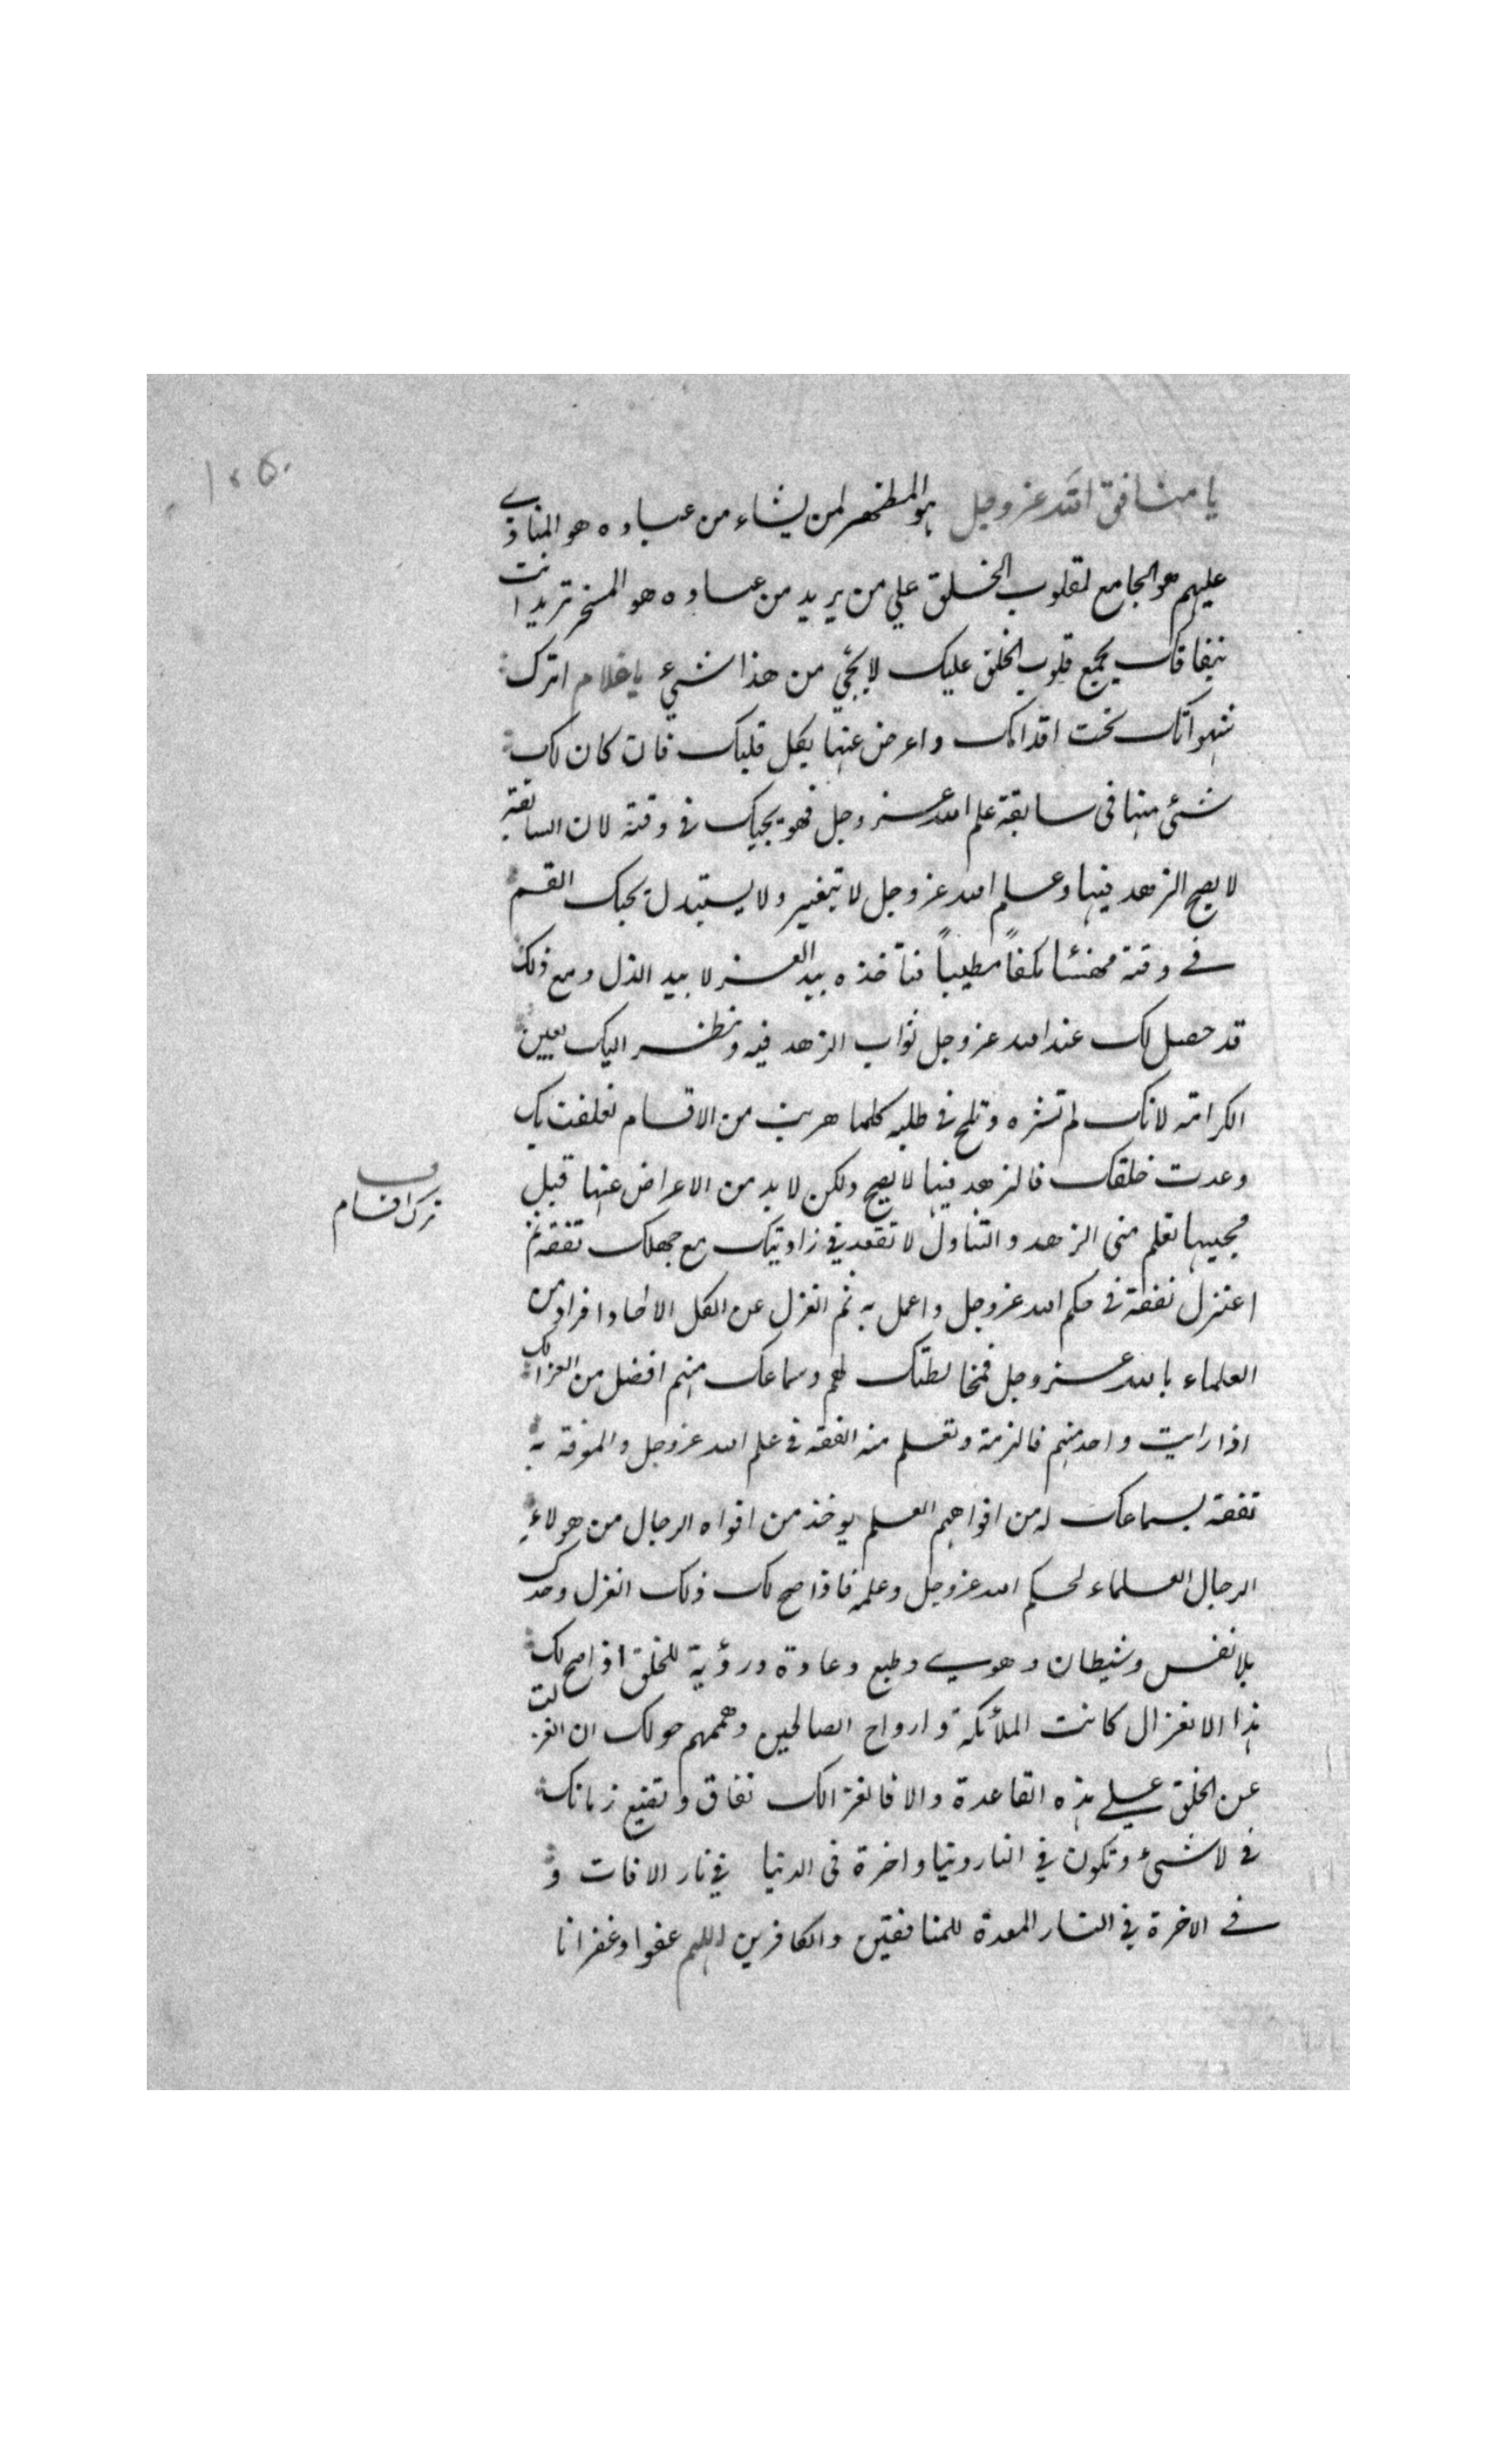 ١٠٥
يا منافق الله عز وجل هو المظهر لمن يشاء من عباده هو المنادي
عليهم هو الجامع لقلوب الخلق علي من يريد من عباده هو المسخر تريد انت
بنفاقك يجمع قلوب الخلق عليك لا يجئ من هذا شيء يا غلام اترك
شهواتك تحت اقدامك واعرض عنها بكل قلبك فان كان لك
شئ منها فى سابقة علم الله عز وجل فهو يجيك في وقته لان السابقة
لا يصح الزهد فيها وعلم الله عز وجل لا يتغير ولا يستبدل يجيك القسم
في وقته مهنئا مكفاً مطيباً فتأخذه بيد العز لا بيد الذل ومع ذلك
قد حصل لك عند الله عز وجل ثواب الزهد فيه ونظر اليك بعين
الكرامة لانك لم تشره وتلح في طلبه كلما هربت من الاقسام تعلقت بك
وعدت خلفك فالزهد فيها لا يصح ولكن لا بد من الاعراض عنها قبل
ترك اقسام
مجيها تعلم منى الزهد والتناول لا تقعد في زاويتك مع جهلك تفقه ثم
اعتزل تفقه في حكم الله عز وجل واعمل به ثم انعزل عن الكل الا احاد افراد من
العلماء بالله عز وجل فمخالطتك لهم وسماعك منهم افضل من انعزالك
اذا رايت واحد منهم فالزمه وتعلم منه الفقه في علم الله عز وجل والمعرفة به
تفقه بسماعك له من افواههم العلم يوخذ من افواه الرجال من هولاء
الرجال العلماء لحكم الله عز وجل وعلمه فاذا صح لك ذلك انعزل وحدك
بلا نفس وشيطان وهوي وطبع وعادة ورؤية للخلق اذا صح لك
هذا الانعزال كانت الملائكة وارواح الصالحين وهممهم حولك ان انعزلت
عن الخلق علي هذه القاعدة والا فانعزالك نفاق وتضيع زمانك
في لا شئ وتكون في النار دنيا واخرة فى الدنيا في نار الافات و
في الاخرة في النار المعدة للمنافقين والكافرين اللهم عفوا وغفرانا